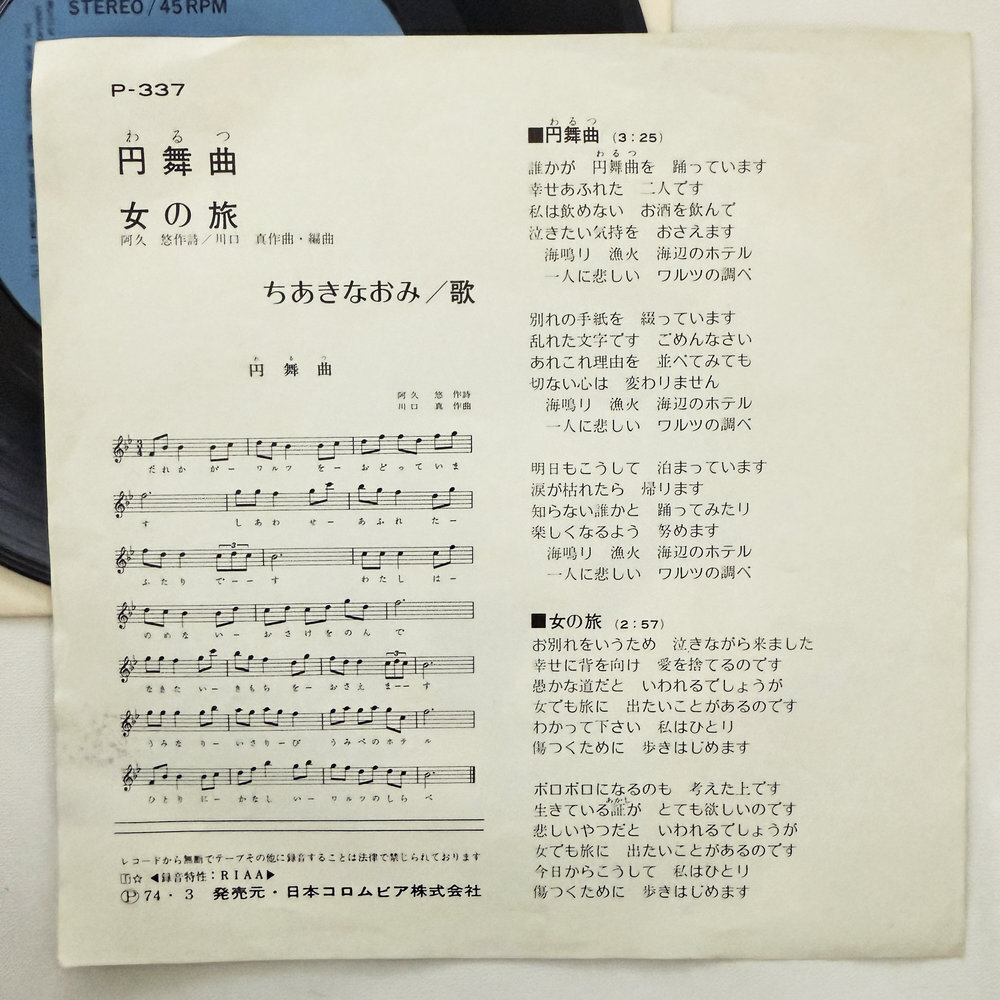 STEREO/45RPM
P-337
わるつ
円舞曲
女の旅
阿久 悠作詩/川口 真作曲・編曲
ちあきなおみ/歌
わるつ
円舞曲
阿久 悠 作詩
川口 真 作曲
だれか がー ワルツ をー おどっていま
す しあわ せー あふれ たー
ふたり でーーす わたし はー
のめな いー おさけをのん で
なきた いー きもち をー おさえ まーーす
うみな りー いさりーび うみべのホテ ル
ひとり にー かなし いー ワルツのしら べ
レコードから無断でテープその他に録音することは法律で禁じられております
☆ ◀録音特性:RIAA▶
Ⓟ74・3 発売元・日本コロムビア株式会社
わるつ
■円舞曲 (3:25)
わるつ
誰かが 円舞曲を 踊っています
幸せあふれた 二人です
私は飲めない お酒を飲んで
泣きたい気持を おさえます
海鳴り 漁火 海辺のホテル
一人に悲しい ワルツの調べ
別れの手紙を 綴っています
乱れた文字です ごめんなさい
あれこれ理由を 並べてみても
切ない心は 変わりません
海鳴り 漁火 海辺のホテル
一人に悲しい ワルツの調べ
明日もこうして 泊まっています
涙が枯れたら 帰ります
知らない誰かと 踊ってみたり
楽しくなるよう 努めます
海鳴り 漁火 海辺のホテル
一人に悲しい ワルツの調べ
■女の旅 (2:57)
お別れをいうため 泣きながら来ました
幸せに背を向け 愛を捨てるのです
愚かな道だと いわれるでしょうが
女でも旅に 出たいことがあるのです
わかって下さい 私はひとり
傷つくために 歩きはじめます
ボロボロになるのも 考えた上です
あかし
生きている証が とても欲しいのです
悲しいやつだと いわれるでしょうが
女でも旅に 出たいことがあるのです
今日からこうして 私はひとり
傷つくために 歩きはじめます